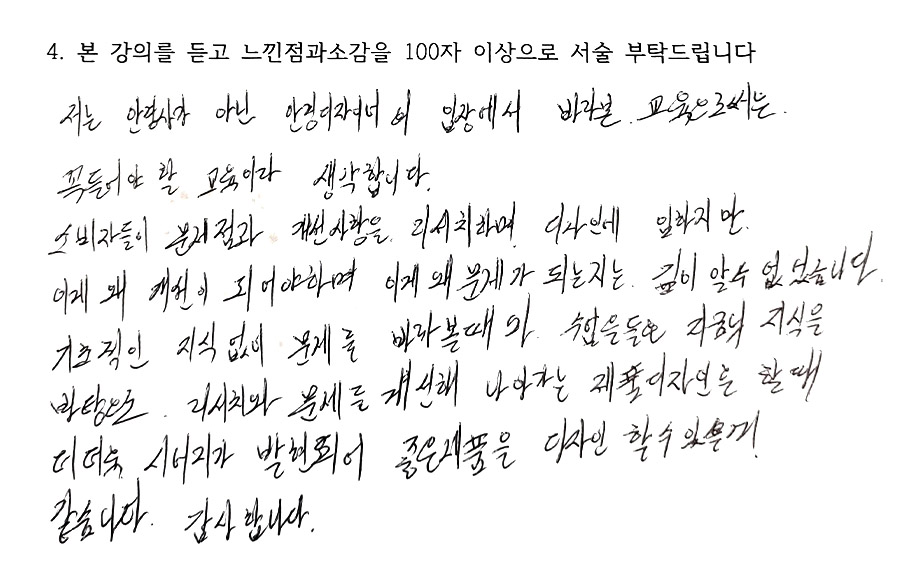 4. 본 강의를 듣고 느낀점과소감을 100자 이상으로 서술 부탁드립니다
저는 안경사가 아닌 안경디자이너 의 입장에서 바라본. 교육으로써는.
꼭들어야 할 교육이라 생각합니다.
소비자들이 문제점과 개선사항을 리서치하며 디자인에 임하지만.
이게 왜 개선이 되어야하며 이게 왜 문제가 되는지는 깊이 알수 없었습니다.
기초적인 지식 없이 문제를 바라볼때 와 수업을들은 지금의 지식을
바탕으로. 리서치와 문제를 개선해 나아가는 제품디자인을 할때
더더욱 시너지가 발현되어 좋은제품을 디자인 할수있을거
같습니다. 감사합니다.